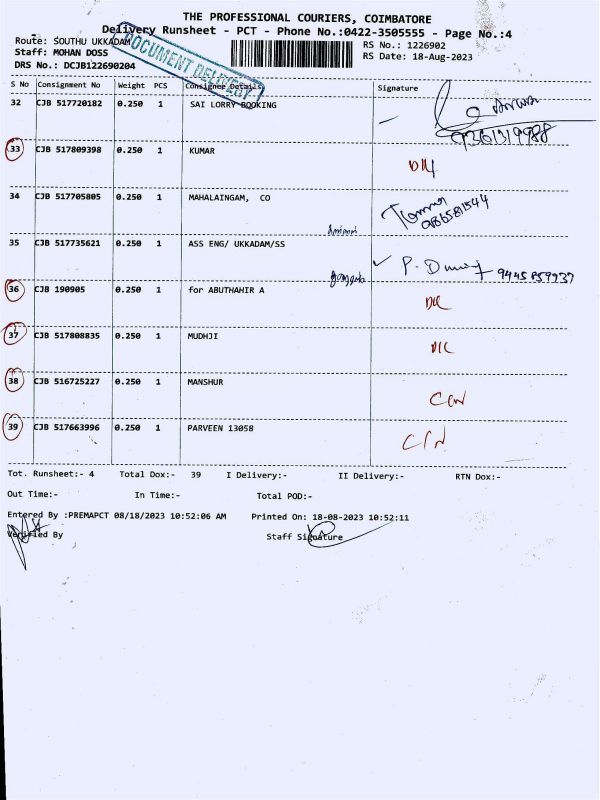 THE PROFESSIONAL COURIERS, COIMBATORE
Delivery Runsheet - PCT - Phone No.:0422-3505555 - Page No.:4
Route: SOUTHU UKKADAM
RS No.: 1226902
Staff: MOHAN DOSS
RS Date: 18-Aug-2023
DRS No.: DCJB122690204
DOCUMENT DELIVERY
S No Consignment No Weight PCS Consignee Details Signature
32 CJB 517720182 0.250 1 SAI LORRY BOOKING
9361319988
33 CJB 517809398 0.250 1 KUMAR
34 CJB 517705805 0.250 1 MAHALAINGAM, CO
35 CJB 517735621 0.250 1 ASS ENG/ UKKADAM/SS
36 CJB 190905 0.250 1 for ABUTHAHIR A
37 CJB 517808835 0.250 1 MUDHJI
38 CJB 516725227 0.250 1 MANSHUR
39 CJB 517663996 0.250 1 PARVEEN 13058
Tot. Runsheet:- 4 Total Dox:- 39 I Delivery:- II Delivery:- RTN Dox:-
Out Time:- In Time:- Total POD:-
Entered By :PREMAPCT 08/18/2023 10:52:06 AM Printed On: 18-08-2023 10:52:11
Verified By Staff Signature